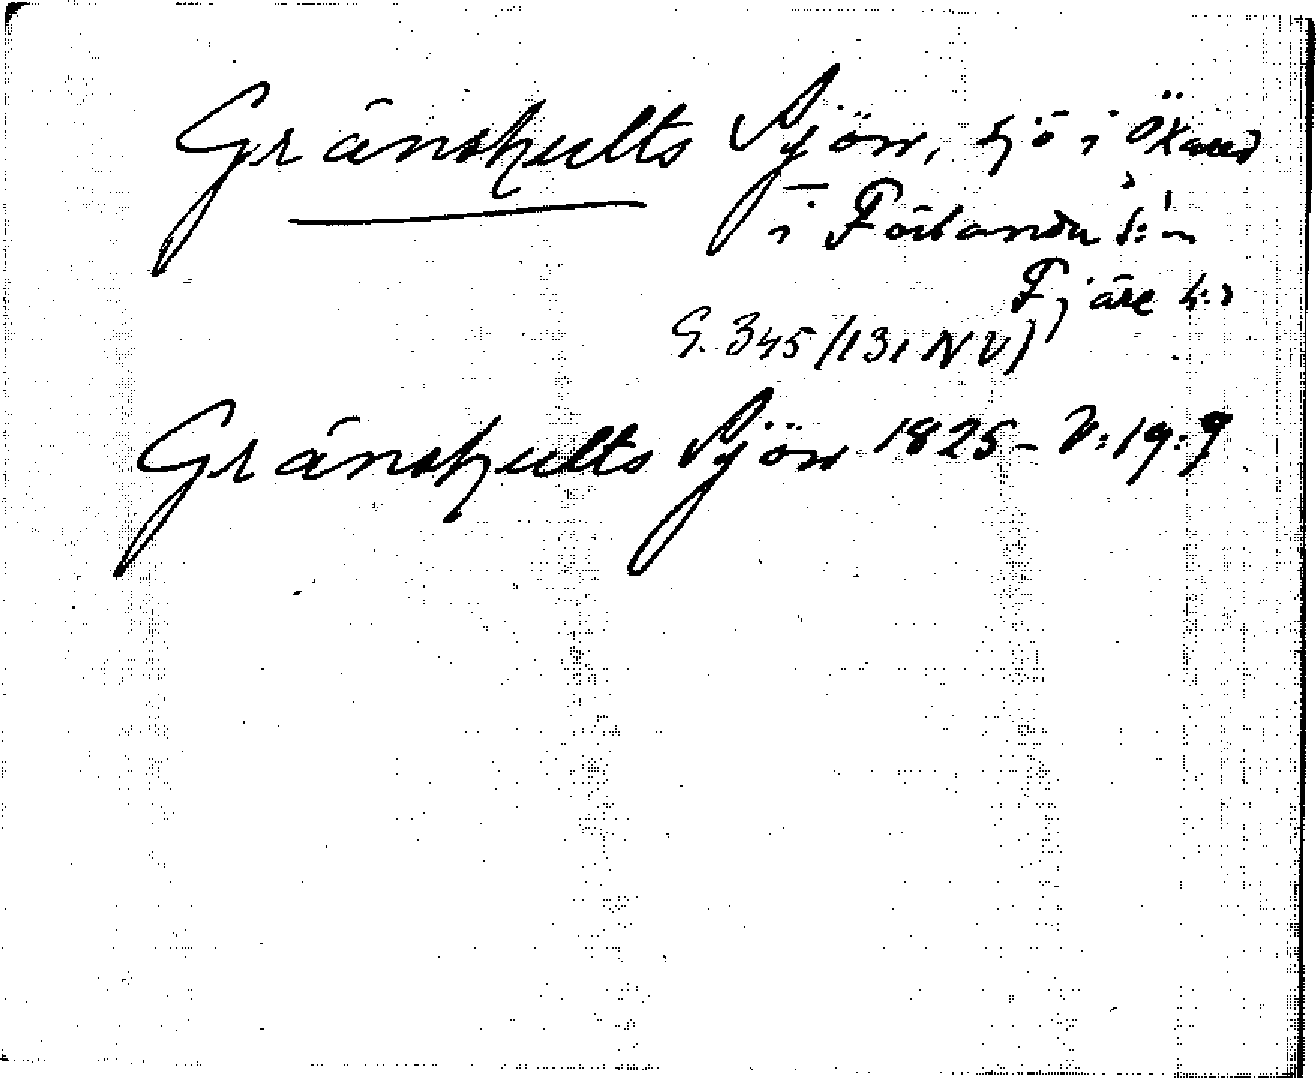 Gränshults Sjön, sjö i Öxared
i Förlanda s:n
Fjäre h:d
G. 345/131 NV)
Gränshults Sjön 1825 - V:19:9